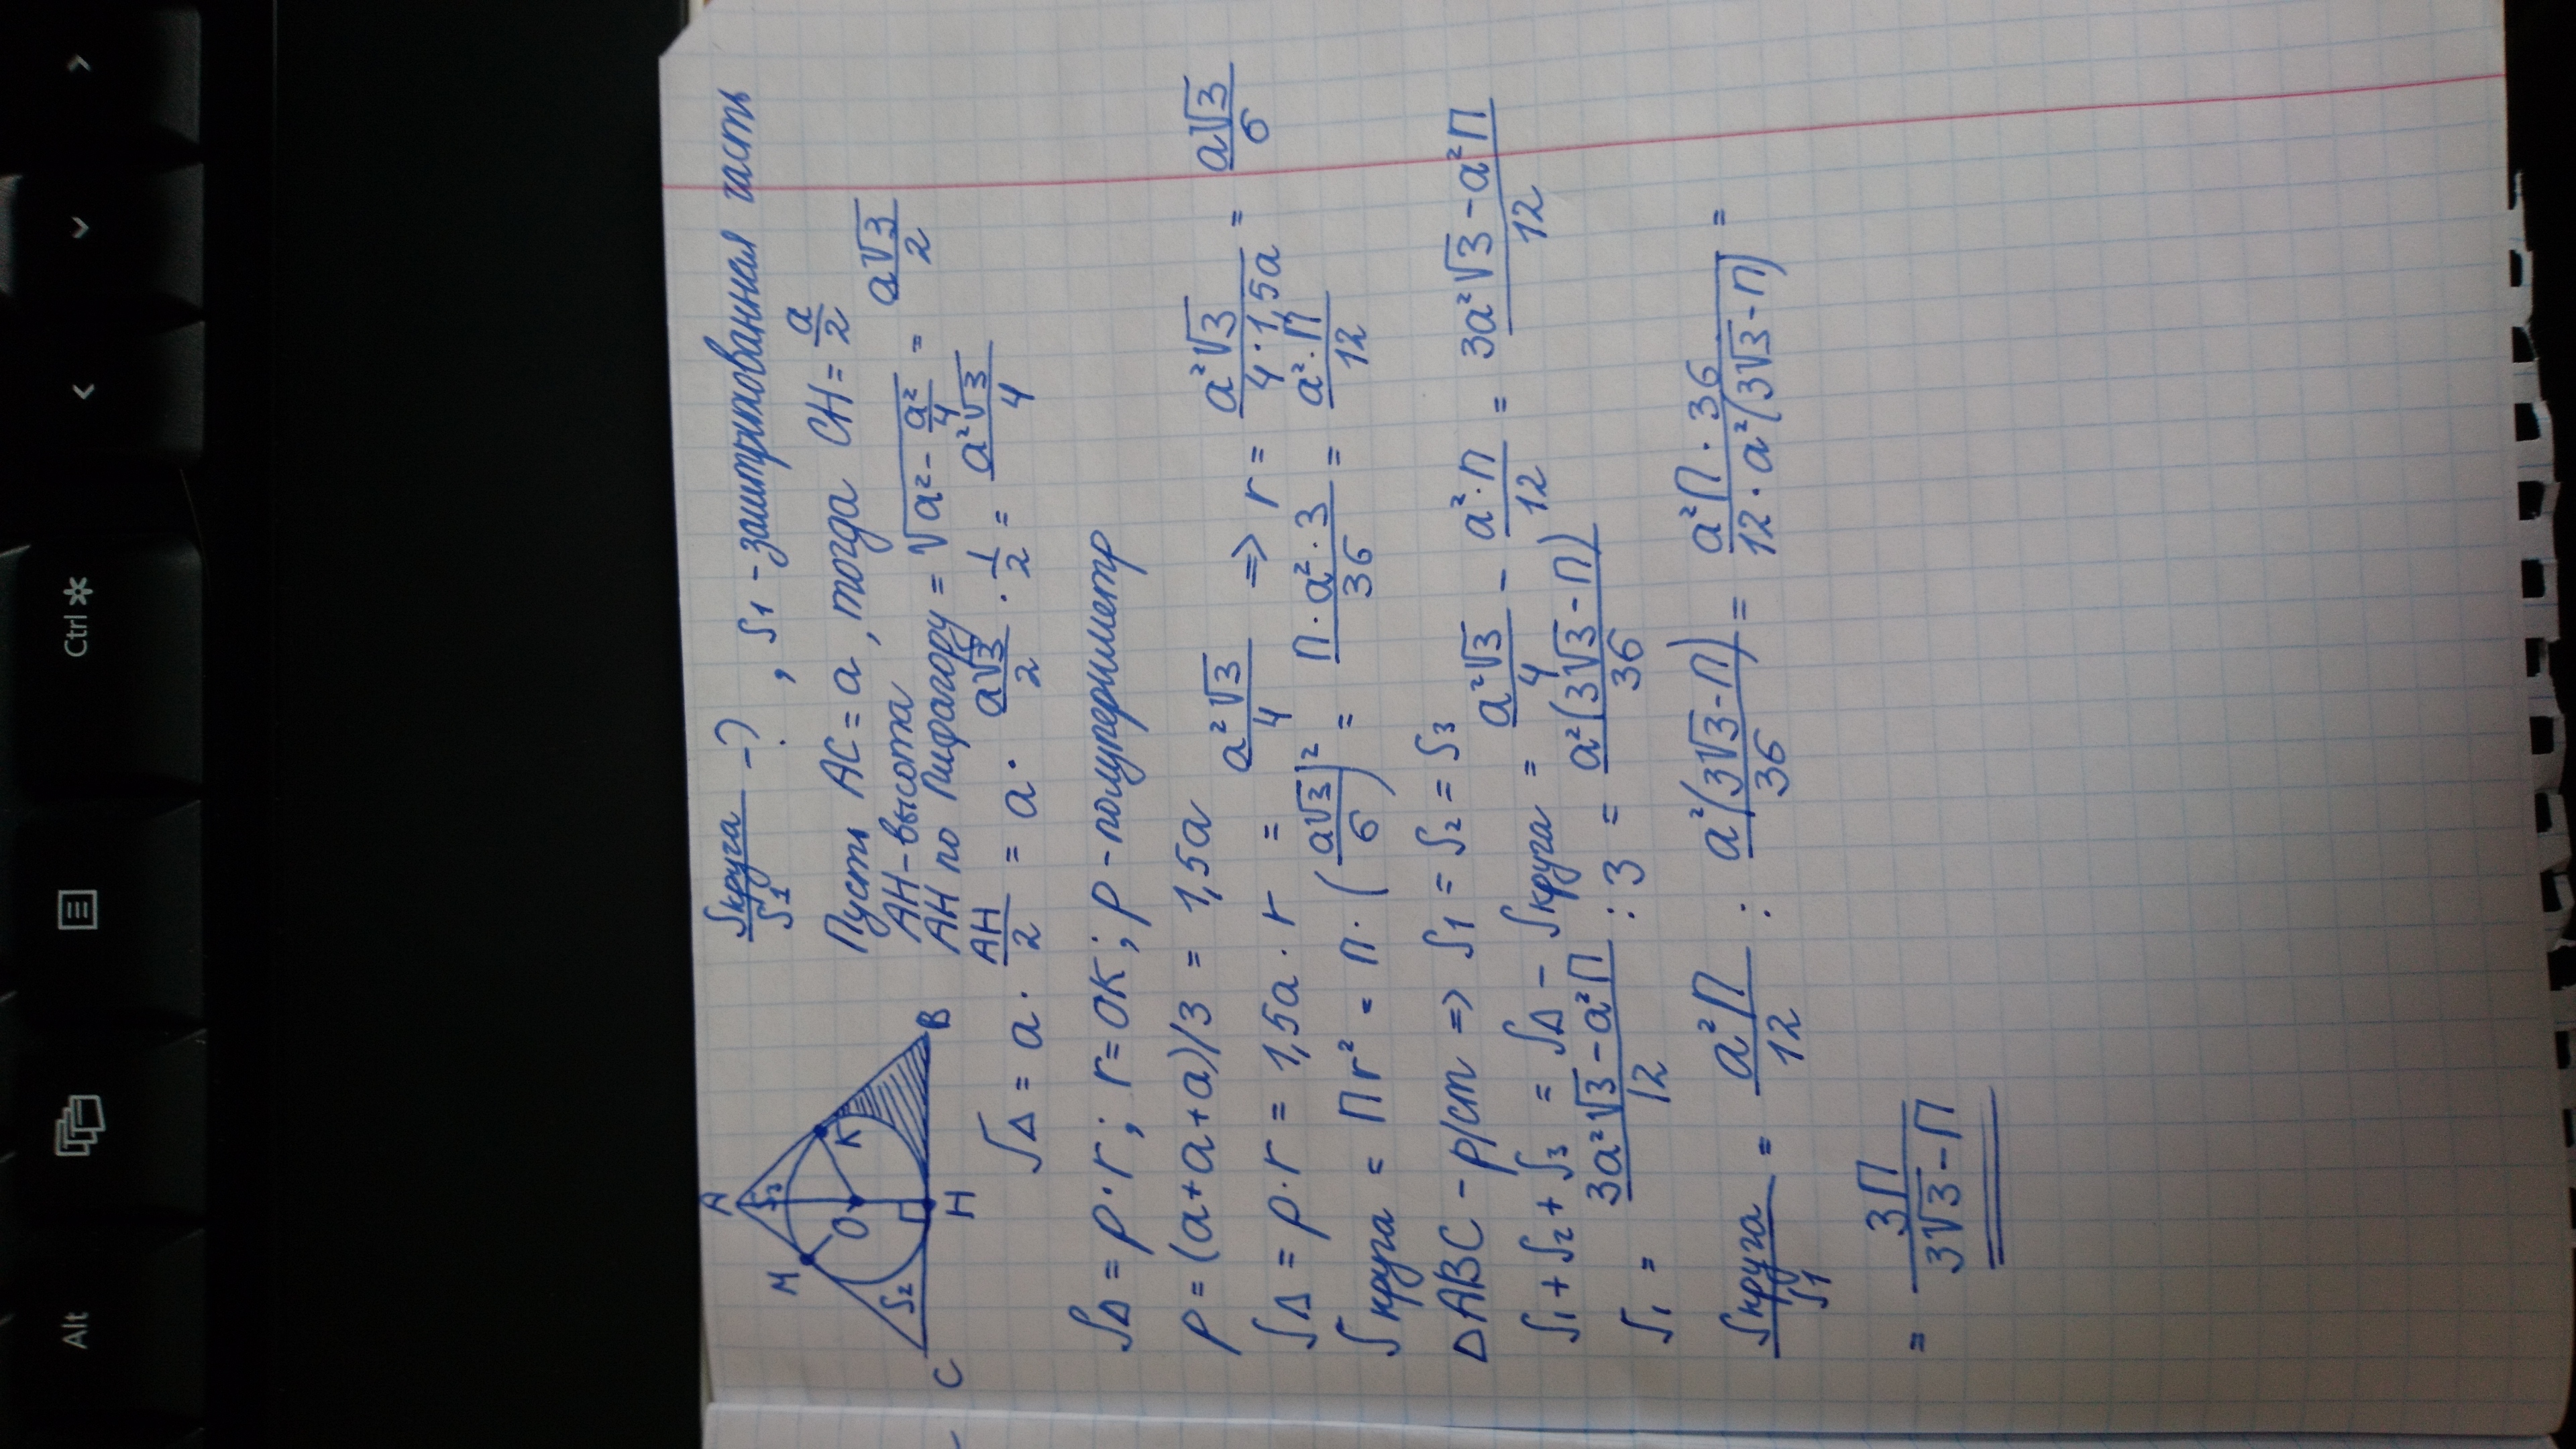 Sкруга/S1 - ? , S1 - заштрихованная часть
Пусть AC = a, тогда CH = a/2
AH - высота
AH по Пифагору = √(a² - a²/4) = a√3/2
S∆ = a · AH/2 = a · a√3/2 · 1/2 = a²√3/4
S∆ = p · r; r = OK; p - полупериметр
p = (a+a+a)/3 = 1,5a
S∆ = p · r = 1,5a · r = a²√3/4 => r = a²√3/(4 · 1,5a) = a√3/6
Sкруга = Пr² = П · (a√3/6)² = П · a² · 3/36 = a² · П/12
∆ABC - р/ст => S1 = S2 = S3
S1 + S2 + S3 = S∆ - Sкруга = a²√3/4 - a² · П/12 = 3a²√3 - a²П/12
S1 = 3a²√3 - a²П/12 : 3 = a²(3√3 - П)/36
Sкруга/S1 = a²П/12 : a²(3√3 - П)/36 = a²П · 36/12 · a²(3√3 - П) =
= 3П/3√3 - П
A
M
S3
K
O
S2
C
H
B
Alt
Ctrl